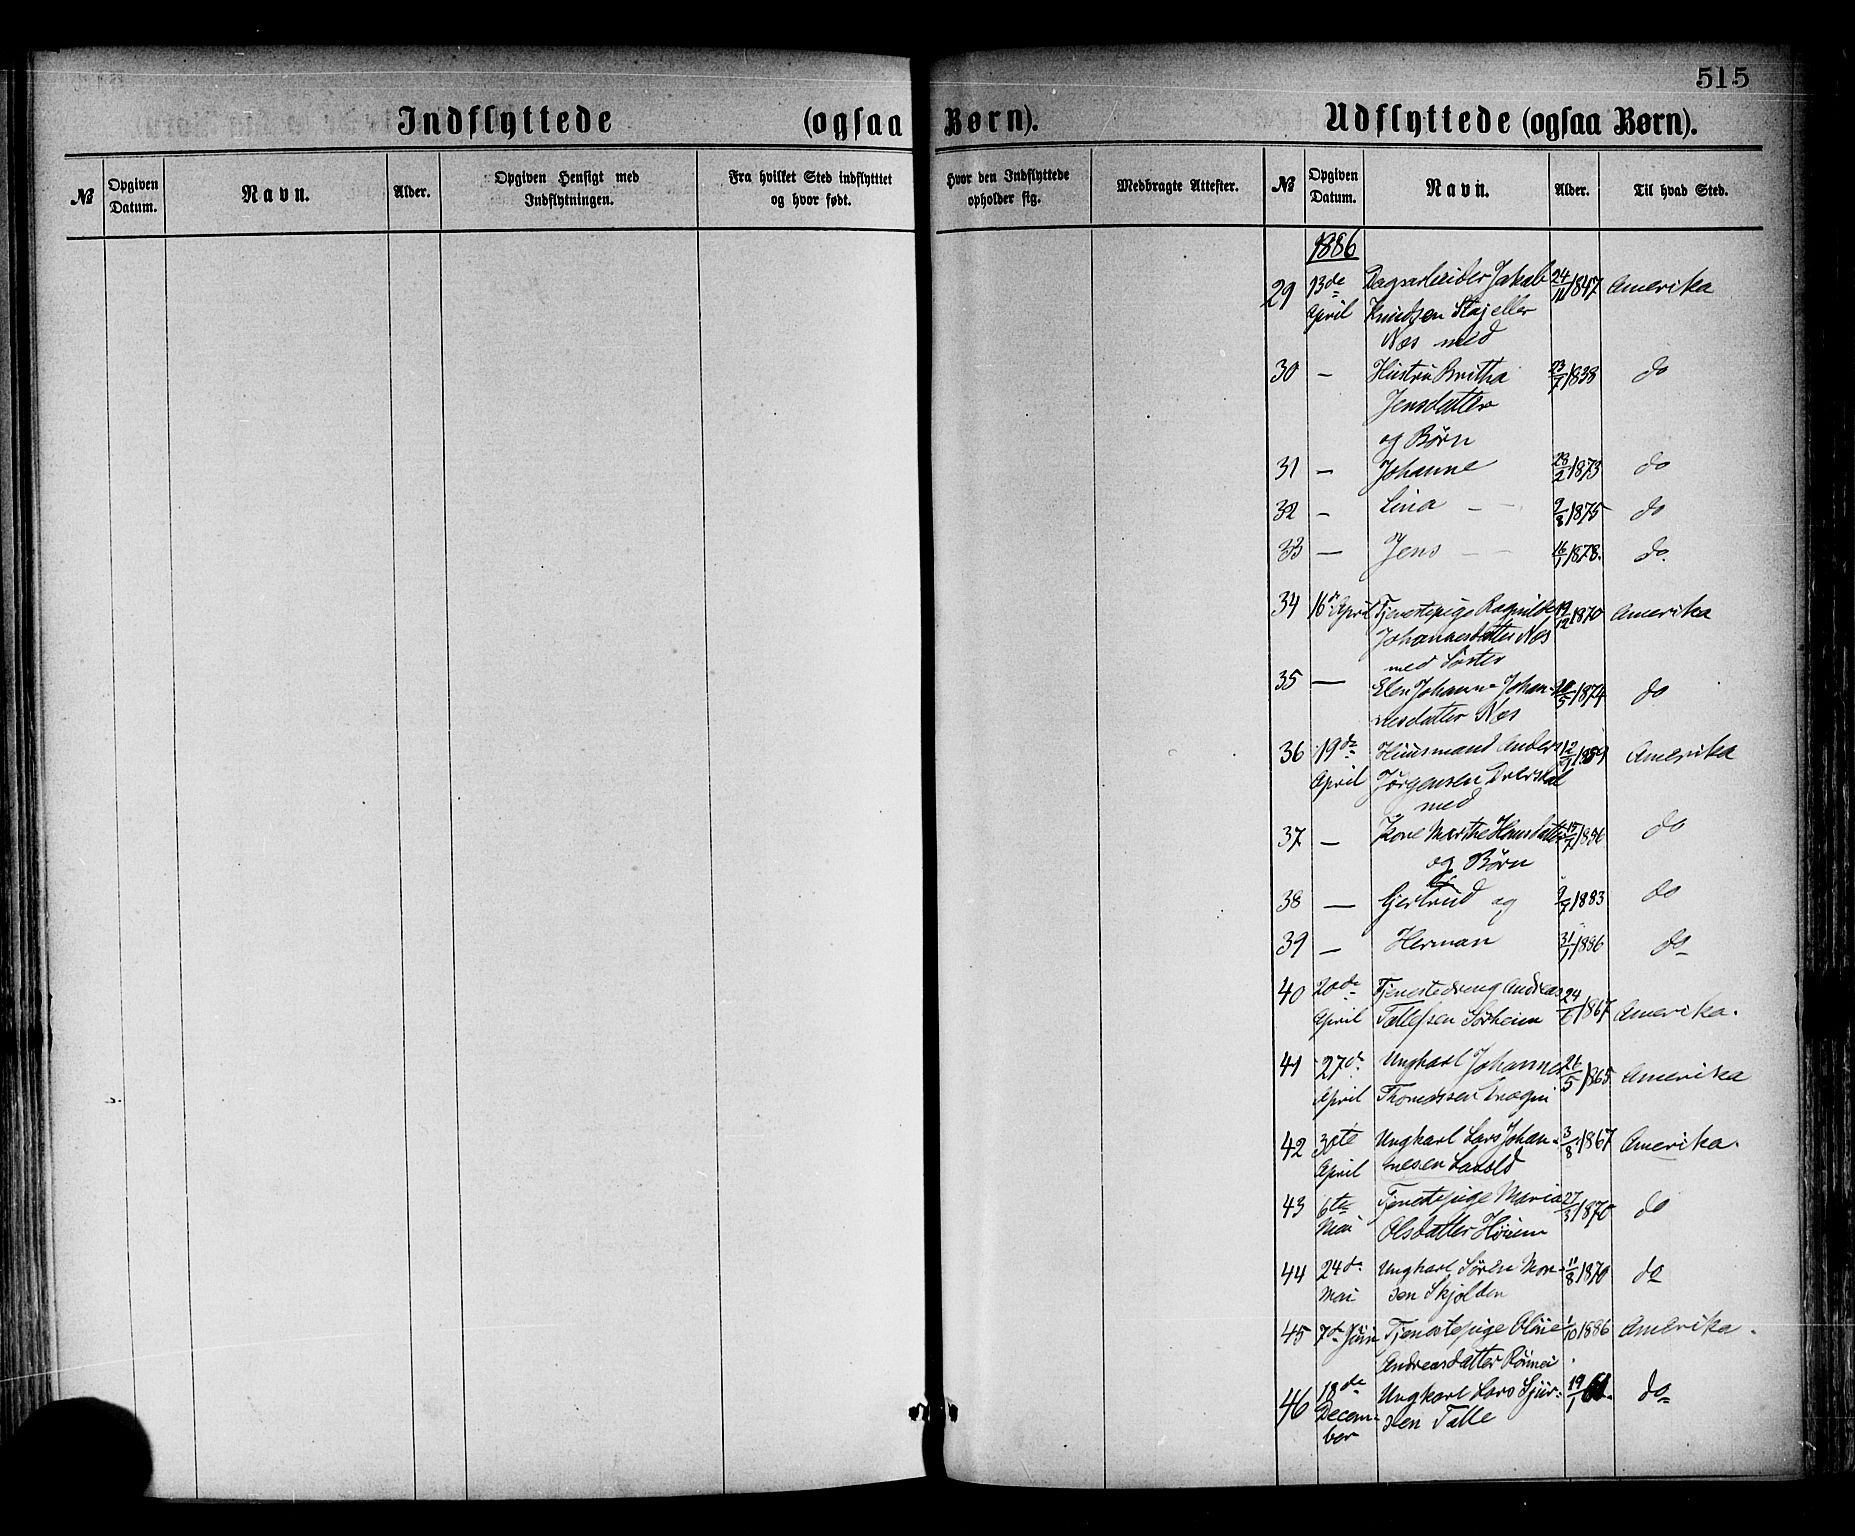 515
Indflyttede (ogsaa Børn).
Udflyttede (ogsaa Børn).
№
Opgiven Datum.
Navn.
Alder.
Opgiven Hensigt med Indflytningen.
Fra hvilket Sted indflyttet og hvor født.
Hvor den Indflyttede opholder sig.
Medbragte Attester.
№
Opgiven Datum.
Navn.
Alder.
Til hvad Sted.
1886
29 13de Dagsarbeider Jakob 24/11 1847 Amerika
April Knudsen eller
Næs med
30 — Hustru Britha 23/7 1838 do
Jensdatter
og Børn
31 — Johanne 28/2 1873 do
32 — Lina — 9/8 1875 do
33 — Jens — 16/1 1878. do.
34 16de April Tjenestepige Ragnilde 19/12 1870 Amerika
Johannesdatter Næs
med Søster
35 — Elen Johanne Johan- 20/5 1874 do
nesdatter Næs
36 19de Huusmand Anders 12/7 1859 Amerika
April Jørgensen
med
37 — Kone Marthe Hansdatter 15/7 1856 do
og Børn
38 — Gjertrud og 9/7 1883 do
39 — Herman 31/1 1886 do
40 20de Tjenestedreng Andreas 24/6 1867 Amerika.
April Tollefsen Sørheim
41 27de Ungkarl Johannes 26/5 1865 Amerika
April Thomassen Drægni
42 30te Ungkarl Lars Johan- 3/8 1867 Amerika.
April nesen
43 6te Tjenestepige Maria 27/3 1870 do
Mai Olsdatter Høiem
44 24de Ungkarl Søren Mon- 11/8 1870 do
Mai sen Skjolden
45 7de Juni Tjenestepige Oline 1/10 1886 Amerika.
Andreasdatter Rønnei
46 18de Ungkarl Lars Sjur- 19/1 61. do
Decem- sen Talle
ber